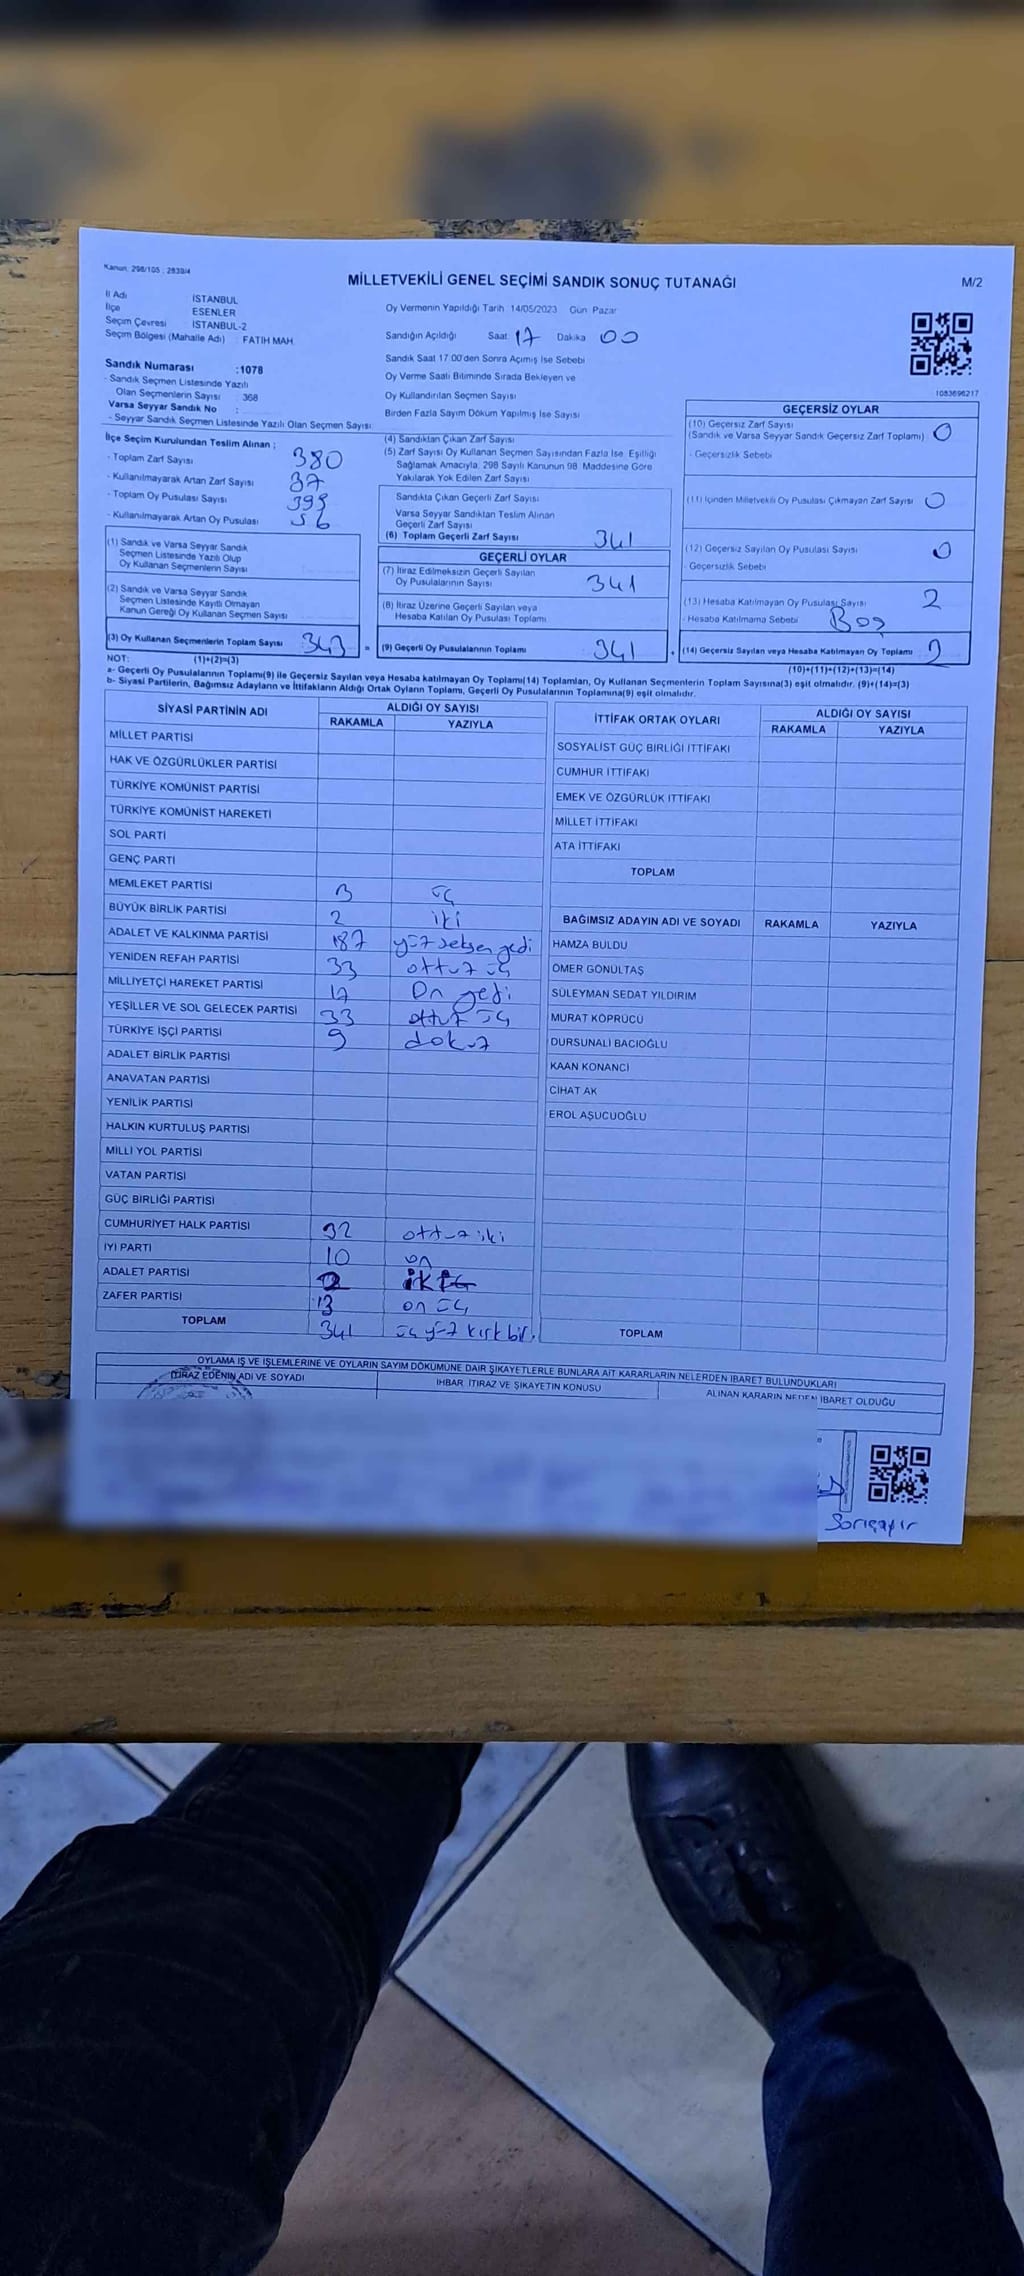 Kanun: 298/105 ; 2839/4
MİLLETVEKİLİ GENEL SEÇİMİ SANDIK SONUÇ TUTANAĞI
M/2
İl Adı İSTANBUL
İlçe ESENLER
Seçim Çevresi İSTANBUL-2
Seçim Bölgesi (Mahalle Adı) : FATİH MAH.
Sandık Numarası :1078
- Sandık Seçmen Listesinde Yazılı
Olan Seçmenlerin Sayısı : 368
Varsa Seyyar Sandık No :
- Seyyar Sandık Seçmen Listesinde Yazılı Olan Seçmen Sayısı:
Oy Vermenin Yapıldığı Tarih 14/05/2023 Gün Pazar
Sandığın Açıldığı Saat 17 Dakika 00
Sandık Saat 17:00'den Sonra Açımış İse Sebebi
Oy Verme Saati Bitiminde Sırada Bekleyen ve
Oy Kullandırılan Seçmen Sayısı
Birden Fazla Sayım Döküm Yapılmış İse Sayısı
1083696217
İlçe Seçim Kurulundan Teslim Alınan ;
- Toplam Zarf Sayısı 380
- Kullanılmayarak Artan Zarf Sayısı 37
- Toplam Oy Pusulası Sayısı
- Kullanılmayarak Artan Oy Pusulası 56
(1) Sandık ve Varsa Seyyar Sandık
Seçmen Listesinde Yazılı Olup
Oy Kullanan Seçmenlerin Sayısı
(2) Sandık ve Varsa Seyyar Sandık
Seçmen Listesinde Kayıtlı Olmayan
Kanun Gereği Oy Kullanan Seçmen Sayısı
(3) Oy Kullanan Seçmenlerin Toplam Sayısı 343 =
(4) Sandıktan Çıkan Zarf Sayısı
(5) Zarf Sayısı Oy Kullanan Seçmen Sayısından Fazla İse, Eşitliği
Sağlamak Amacıyla, 298 Sayılı Kanunun 98. Maddesine Göre
Yakılarak Yok Edilen Zarf Sayısı
Sandıkta Çıkan Geçerli Zarf Sayısı
Varsa Seyyar Sandıktan Teslim Alınan
Geçerli Zarf Sayısı
(6) Toplam Geçerli Zarf Sayısı 341
GEÇERLİ OYLAR
(7) İtiraz Edilmeksizin Geçerli Sayılan
Oy Pusulalarının Sayısı 341
(8) İtiraz Üzerine Geçerli Sayılan veya
Hesaba Katılan Oy Pusulası Toplamı
(9) Geçerli Oy Pusulalarının Toplamı 341 +
GEÇERSİZ OYLAR
(10) Geçersiz Zarf Sayısı
(Sandık ve Varsa Seyyar Sandık Geçersiz Zarf Toplamı) 0
- Geçersizlik Sebebi
(11) İçinden Milletvekili Oy Pusulası Çıkmayan Zarf Sayısı 0
(12) Geçersiz Sayılan Oy Pusulası Sayısı 0
- Geçersizlik Sebebi
(13) Hesaba Katılmayan Oy Pusulası Sayısı 2
- Hesaba Katılmama Sebebi Boş
(14) Geçersiz Sayılan veya Hesaba Katılmayan Oy Toplamı 2
NOT: (1)+(2)=(3) (10)+(11)+(12)+(13)=(14)
a- Geçerli Oy Pusulalarının Toplamı(9) ile Geçersiz Sayılan veya Hesaba katılmayan Oy Toplamı(14) Toplamları, Oy Kullanan Seçmenlerin Toplam Sayısına(3) eşit olmalıdır. (9)+(14)=(3)
b- Siyasi Partilerin, Bağımsız Adayların ve İttifakların Aldığı Ortak Oyların Toplamı, Geçerli Oy Pusulalarının Toplamına(9) eşit olmalıdır.
SİYASİ PARTİNİN ADI ALDIĞI OY SAYISI
RAKAMLA YAZIYLA
MİLLET PARTİSİ
HAK VE ÖZGÜRLÜKLER PARTİSİ
TÜRKİYE KOMÜNİST PARTİSİ
TÜRKİYE KOMÜNİST HAREKETİ
SOL PARTİ
GENÇ PARTİ
MEMLEKET PARTİSİ 3 üç
BÜYÜK BİRLİK PARTİSİ 2 iki
ADALET VE KALKINMA PARTİSİ 187 yüz seksen yedi
YENİDEN REFAH PARTİSİ 33 ottuz üç
MİLLİYETÇİ HAREKET PARTİSİ 17 On yedi
YEŞİLLER VE SOL GELECEK PARTİSİ 33 ottuz üç
TÜRKİYE İŞÇİ PARTİSİ 9 dokuz
ADALET BİRLİK PARTİSİ
ANAVATAN PARTİSİ
YENİLİK PARTİSİ
HALKIN KURTULUŞ PARTİSİ
MİLLİ YOL PARTİSİ
VATAN PARTİSİ
GÜÇ BİRLİĞİ PARTİSİ
CUMHURİYET HALK PARTİSİ 32 ottuz iki
İYİ PARTİ 10 on
ADALET PARTİSİ 2
ZAFER PARTİSİ 13 on üç
TOPLAM 341 üç yüz kırk bir.
İTTİFAK ORTAK OYLARI ALDIĞI OY SAYISI
RAKAMLA YAZIYLA
SOSYALİST GÜÇ BİRLİĞİ İTTİFAKI
CUMHUR İTTİFAKI
EMEK VE ÖZGÜRLÜK İTTİFAKI
MİLLET İTTİFAKI
ATA İTTİFAKI
TOPLAM
BAĞIMSIZ ADAYIN ADI VE SOYADI RAKAMLA YAZIYLA
HAMZA BULDU
ÖMER GÖNÜLTAŞ
SÜLEYMAN SEDAT YILDIRIM
MURAT KÖPRÜCÜ
DURSUNALİ BACIOĞLU
KAAN KONANCİ
CİHAT AK
EROL AŞUCUOĞLU
TOPLAM
OYLAMA İŞ VE İŞLEMLERİNE VE OYLARIN SAYIM DÖKÜMÜNE DAİR ŞİKAYETLERLE BUNLARA AİT KARARLARIN NELERDEN İBARET BULUNDUKLARI
İTİRAZ EDENİN ADI VE SOYADI İHBAR, İTİRAZ VE ŞİKAYETİN KONUSU ALINAN KARARIN NEDEN İBARET OLDUĞU